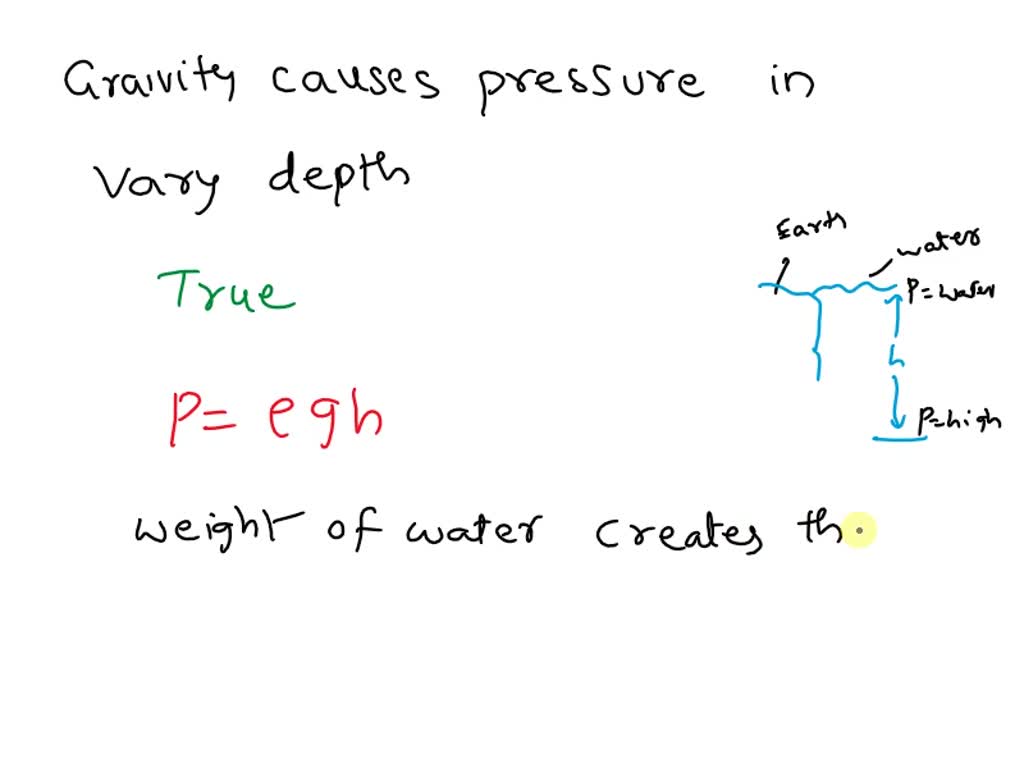 Graivity causes pressure in
Vary depth
Earth
water
True
P=water
h
P= ρgh
P=high
weight of water creates th